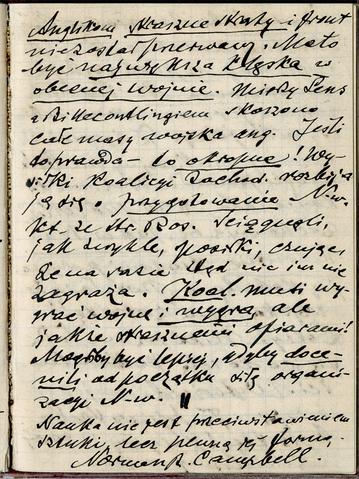 Anglikom straszne straty i front
nie został przerwany. Mało
być największa klęska w
obecnej wojnie. Między Lens
a Bullecontlingiem skoszono
całe masy wojska ang. Jeśli
to prawda – to okropne! Wy-
siłki Koalicyi zachod. rozbija
ją się o przygotowanie N-w.
kt. ze str. Ros. ściągnęli,
jak zwykle, posiłki, czując,
że na razie stąd nic im nie
zagraża. Koal. musi wy-
grać wojnę i wygra, ale
jakże strasznemi ofiarami!
Mogłoby być lepiej, gdyby doce-
nili od początku siłę organi-
zacji N-w.
Nauka nie jest przeciwstawieniem
sztuki, lecz pewną jej formą.
Norman R. Campbell.